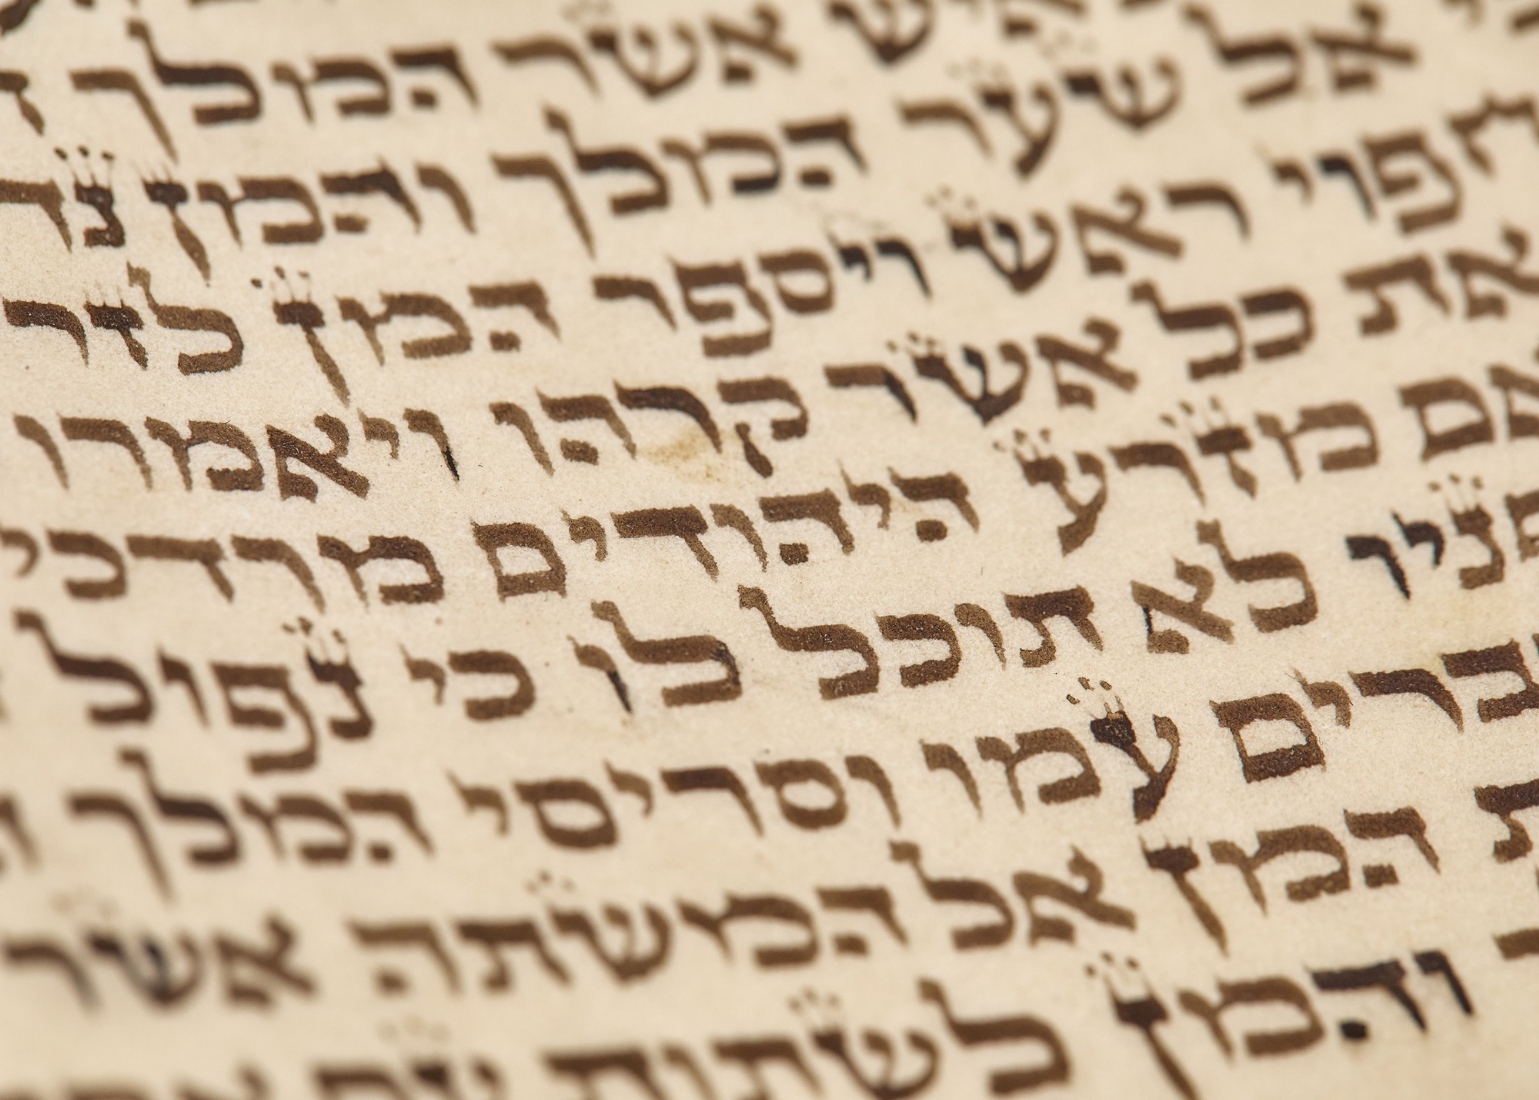 אשר המלך
אל שער המלך והמן נד
חפוי ראש ויספר המן לזר
את כל אשר קרהו ויאמרו
אם מזרע היהודים מרדכי
פניו לא תוכל לו כי נפול
ברים עמו וסריסי המלך
המן אל המשתה אשר
והמן לשתות